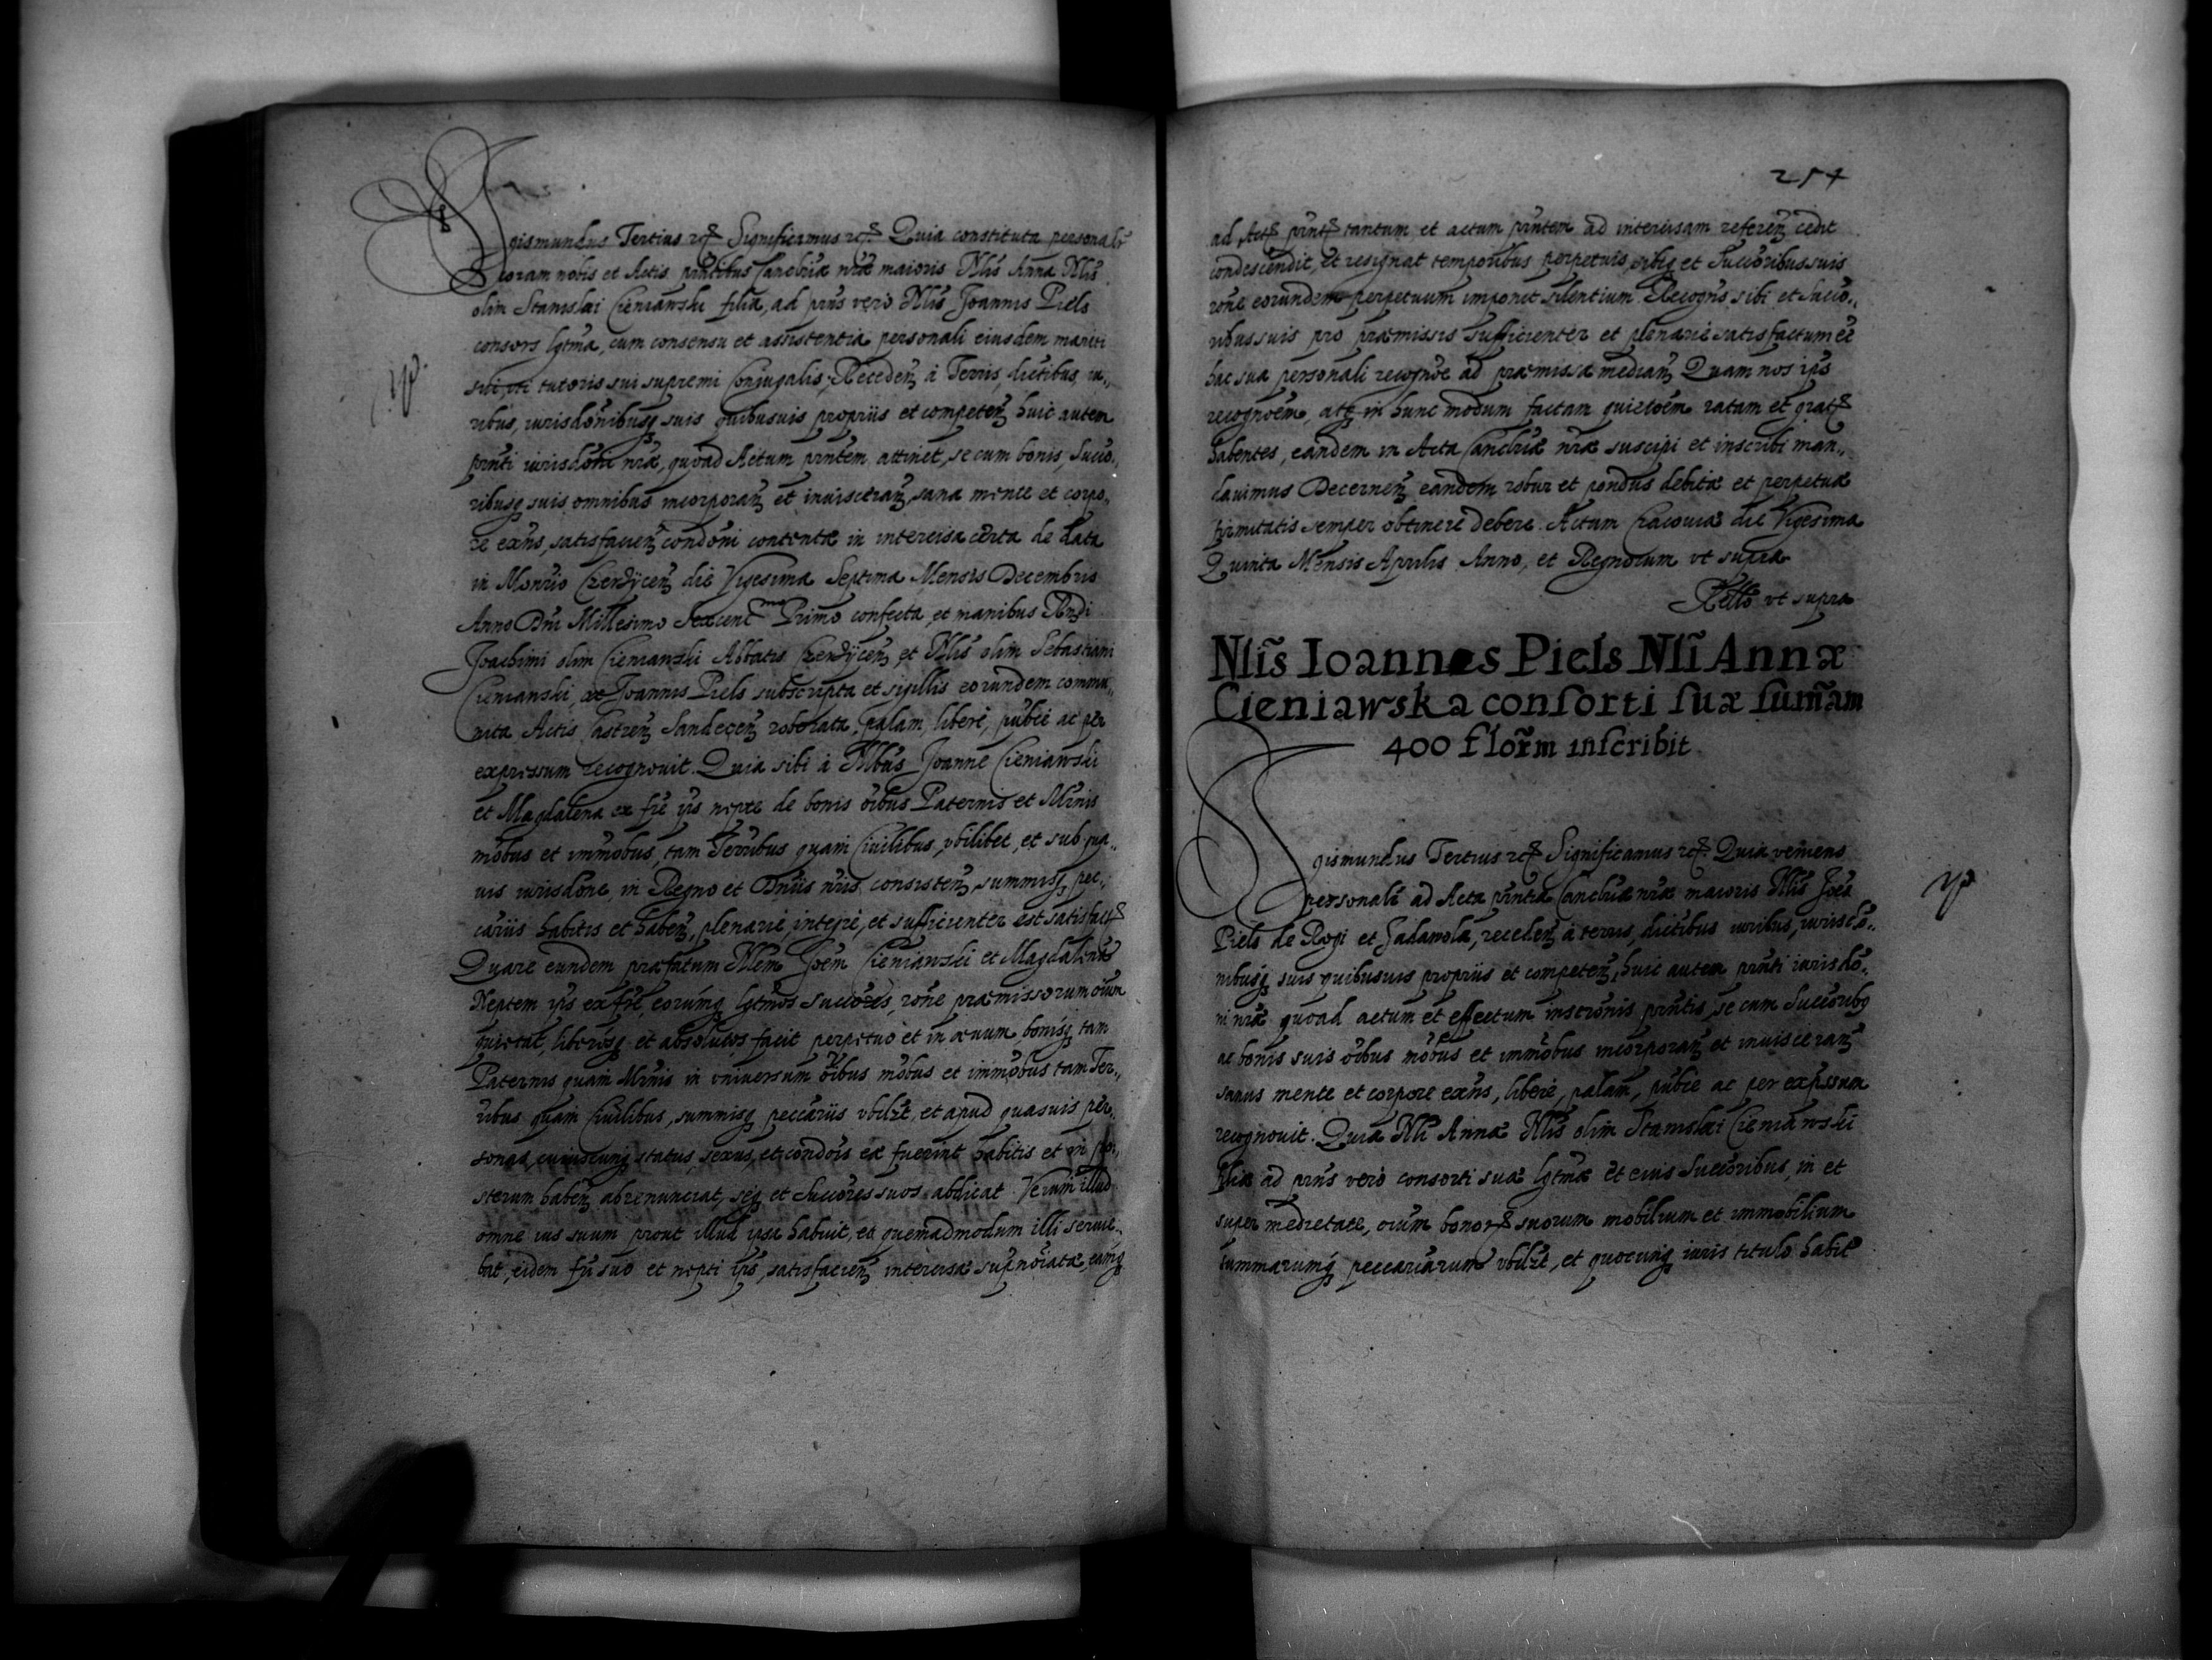 Sigismundus Tertius etc. Significamus etc. Quia constituta personalr
coram nobis et Actis pñtibus Cancellriæ nrã maioris Nlis Anna Nlis
olim Stanislai Cieniawski filia, ad pñs vero Nlis Joannis Piels
consors lgtma, cum consensu et assistentia personali eiusdem mariti
sui, vti tutoris sui supremi Conjugalis, Receden à Terris, dictibus, iu„
ribus, iurisdōnibusq suis quibusuis propriis et competen, huic autem
pñti iurisdōni nrã, quoad Actum pñtem attinet, se cum bonis, Succo„
ribusq suis omnibus incorporan et inuisceran, sana mente et corpo„
re exñs, satisfacien condōni contentæ in intercisa certa de data
in Monrio Czerdÿcen die Vigesima Septima Mensis Decembris
Anno Dni Millesimo Sexcent.mo Primo confecta, et manibus Rndi
Joachimi olim Cieniawski Abbatis Czerdÿcen, et Nlis olim Sebastiani
Cieniawski, ac Joannis Piels subscripta et sigillis eorundem commu„
nita Actis Castren Sandecen roborata, palam, libere, publice ac per
expressum recognouit. Quia sibi à Nlibus Joanne Cieniawski
et Magdalena ex fre ips nepte de bonis oibus Paternis et Mrnis
mōbus et immōbus, tam Terribus quam Ciuilibus, vbilibet, et sub qua„
uis iurisdōne, in Regno et Dniis nris consisten, summisq pec„
cariis habitis et haben, plenarie, integre, et sufficienter est satisfact
Quare eundem præfatum Nlem Joem Cieniawski et Magdalenam
Neptem ips ex fre, eorumq lgtmos succores, rōne præmissorum oium
quietat, liberosq et absolutos facit perpetuo et in æuum, bonisq tam
Paternis quam Mrnis in vniuersum oibus mōbus et immōbus tam Ter„
ribus quam Ciuilibus, summisq peccariis vbilzt, et apud quasuis per„
sonas, cuiuscunq status, sexus, et condōis eæ fuerint habitis et in po„
sterum haben, abrenunciat, seq et Succores suos abdicat. Verum illud
omne ius suum prout illud ipsa habuit, et quemadmodum illi serue„
bat, eidem fri suo et nepti ips, satisfacien intercisæ supnoiatæ, eamq
254
ad Act pñt tantum et actum pñtem ad intercisam referen cedit
condescendit, et resignat temporibus perpetuis, sibiq et Succoribus suis
rōne eorundem perpetuum imponit silentium. Recogñs sibi et Succo„
ribus suis pro præmissis sufficienter et plenarie satisfactum eē
hac sua personali recognōe ad præmissa median. Quam nos ips
recognoēm, atq in hunc modum factam quietoēm ratam et grat
habentes, eandem in Acta Cancellriæ nrã suscipi et inscribi man„
dauimus Decernen eandem robur et pondus debitæ et perpetuæ
firmitatis semper obtinere debere. Actum Cracouiæ die Vigesima
Quinta Mensis Aprilis Anno, et Regnorum vt supra
Rello vt supra
Nlis Ioannes Piels Nli Annæ
Cieniawska consorti suæ sumam
400 florm inscribit
Sigismundus Tertius etc. Significamus etc. Quia veniens
personalr ad Acta pñtia Cancellriæ nrã maioris Nlis Joes
Piels de Rogi et Sadamola, receden à terris, dictibus iuribus, iurisdō„
nibusq suis quibusuis propriis et competen, huic autem pñti iurisdō„
ni nrã quoad actum et effectum inscrōnis pñtis, se cum Succoribq
ac bonis suis oibus mōbus et immōbus incorporan et inuisceran
sanus mente et corpore exñs, libere, palam, publice ac per expssum
recognouit. Quia Nli Annæ Nlis olim Stanislai Cieniawski
filiæ ad pñs vero consorti suæ lgtmæ et eius Succoribus, in et
super medietate, oium bonor suorum mobilium et immobilium
summarumq peccariarum vbilzt, et quocunq iuris titulo habit